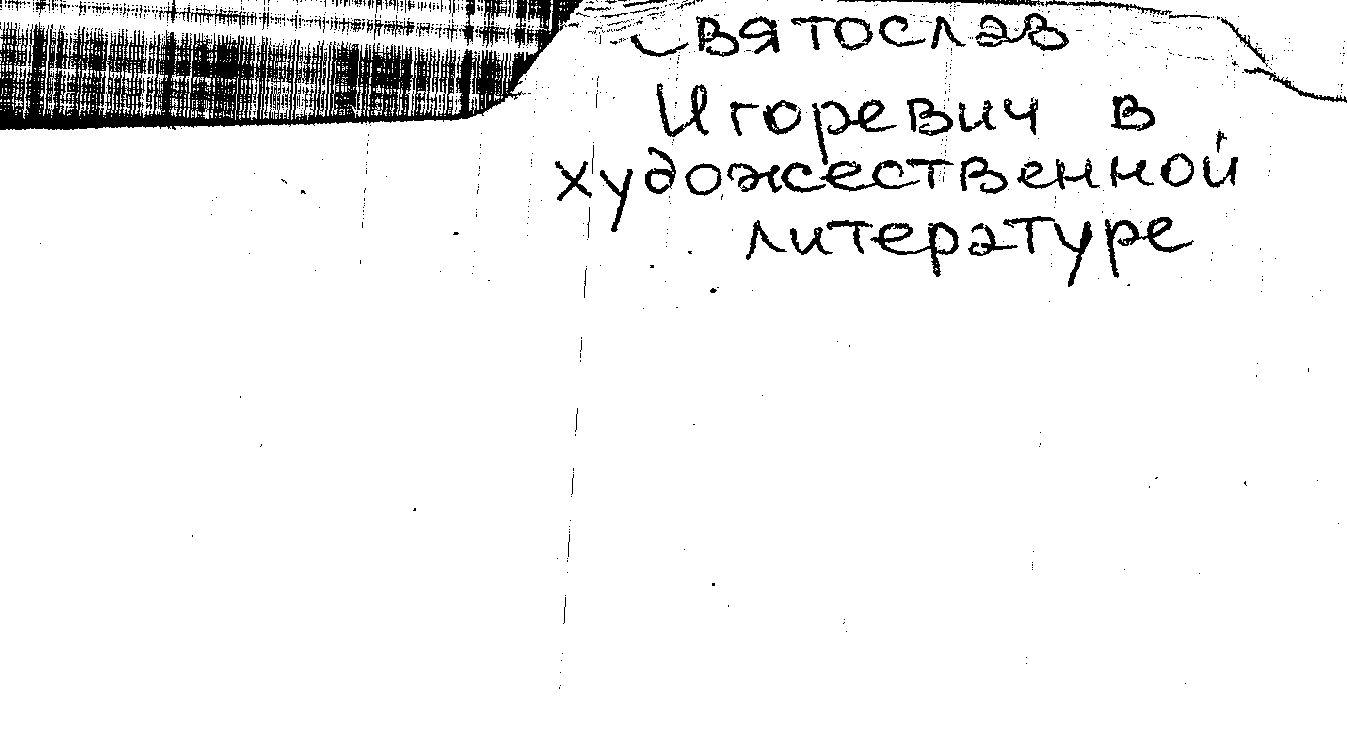 Святослав
Игоревич в
художественной
литературе